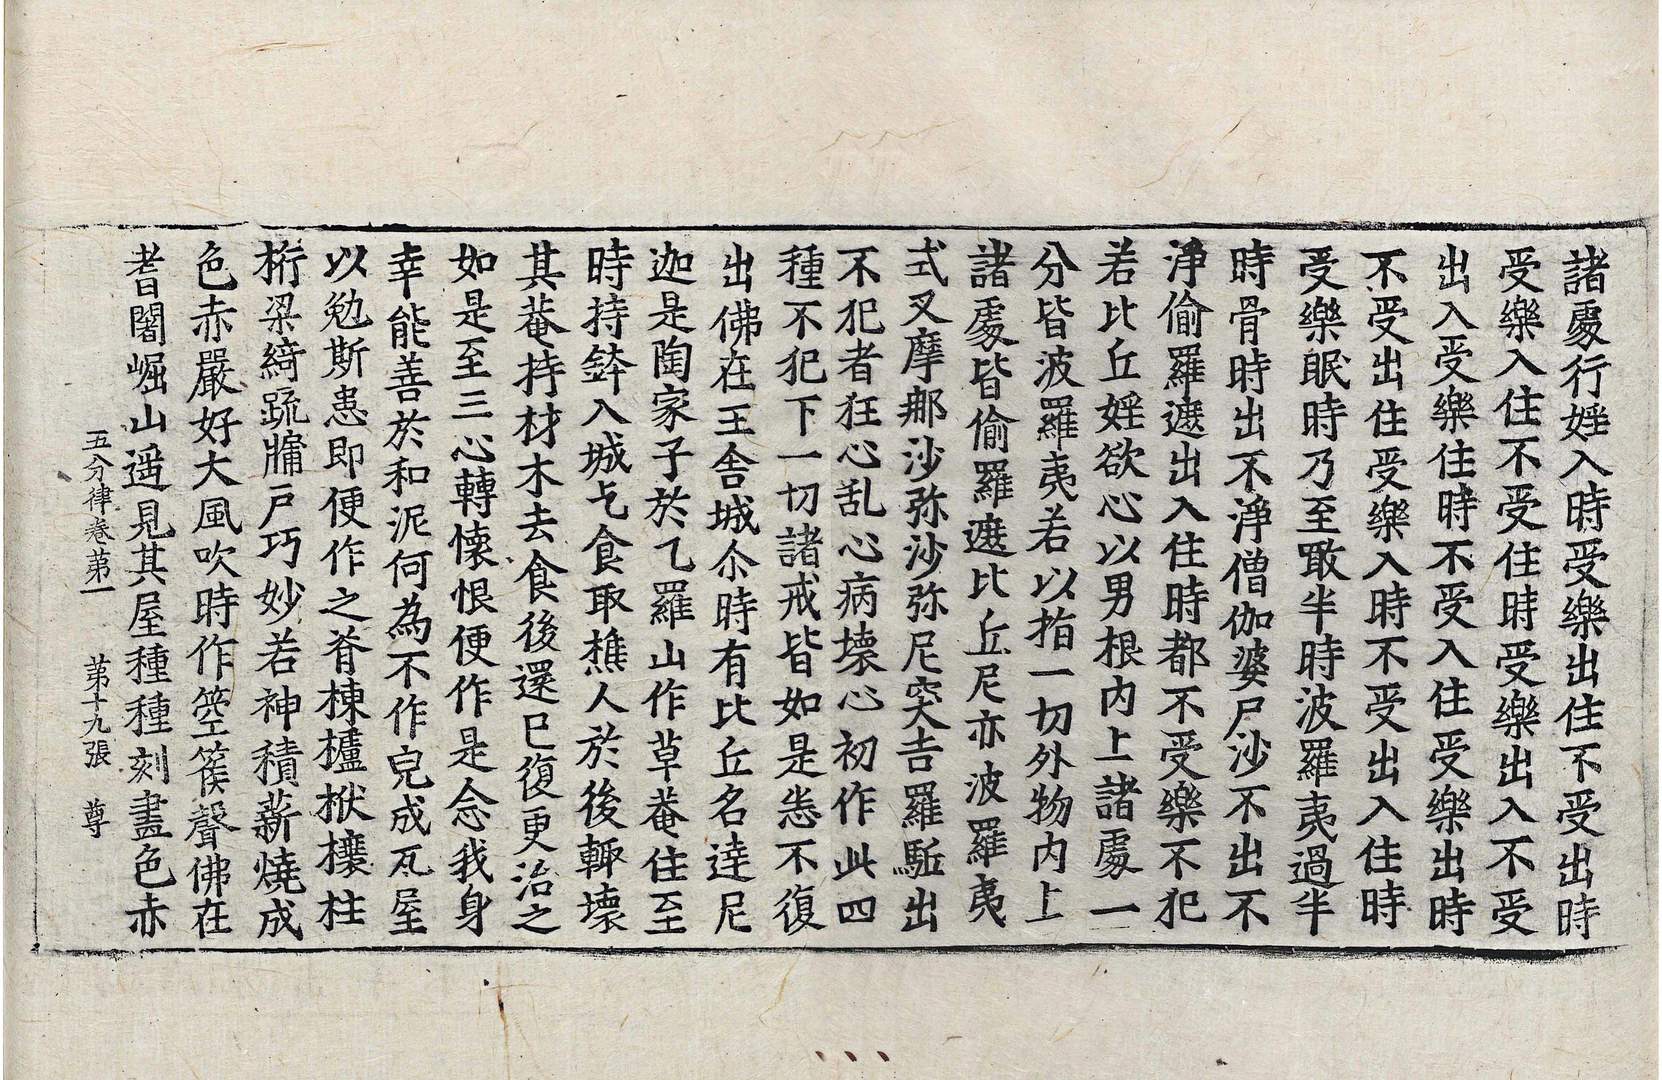 諸處行婬入時受樂出住不受出時
受樂入住不受住時受樂出入不受
出入受樂住時不受入住受樂出時
不受出住受樂入時不受出入住時
受樂眠時乃至噉半時波羅夷過半
時骨時出不淨僧伽婆尸沙不出不
淨偷羅遮出入住時都不受樂不犯
若比丘婬欲心以男根內上諸處一
分皆波羅夷若以指一切外物內上
諸處皆偷羅遮比丘尼亦波羅夷
式叉摩那沙弥沙弥尼突吉羅駈出
不犯者狂心乱心病壞心初作此四
種不犯下一切諸戒皆如是悉不復
出佛在王舍城尒時有比丘名達尼
迦是陶家子於乙羅山作草菴住至
時持鉢入城乞食取樵人於後輙壞
其菴持材木去食後還已復更治之
如是至三心轉懷恨便作是念我身
幸能善於和泥何為不作皃成瓦屋
以勉斯患即便作之脊棟櫨栿欀柱
桁梁綺疏牖戶巧妙若神積薪燒成
色赤嚴好大風吹時作箜篌聲佛在
耆闍崛山遥見其屋種種刻畫色赤
五分律卷第一 第十九張 尊